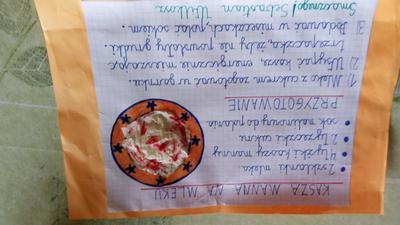 KASZA MANNA NA MLEKU
• 2 szklanki mleka
• 4 łyżki kaszy manny
• 2 łyżeczki cukru
• sok malinowy do polania
PRZYGOTOWANIE
1) Mleko z cukrem zagotować w garnku.
2) Wsypać kaszę, energicznie mieszając
trzepaczką, żeby nie powstały grudki.
3) Podawać w miseczkach, polać sokiem.
Smacznego! Sebastian